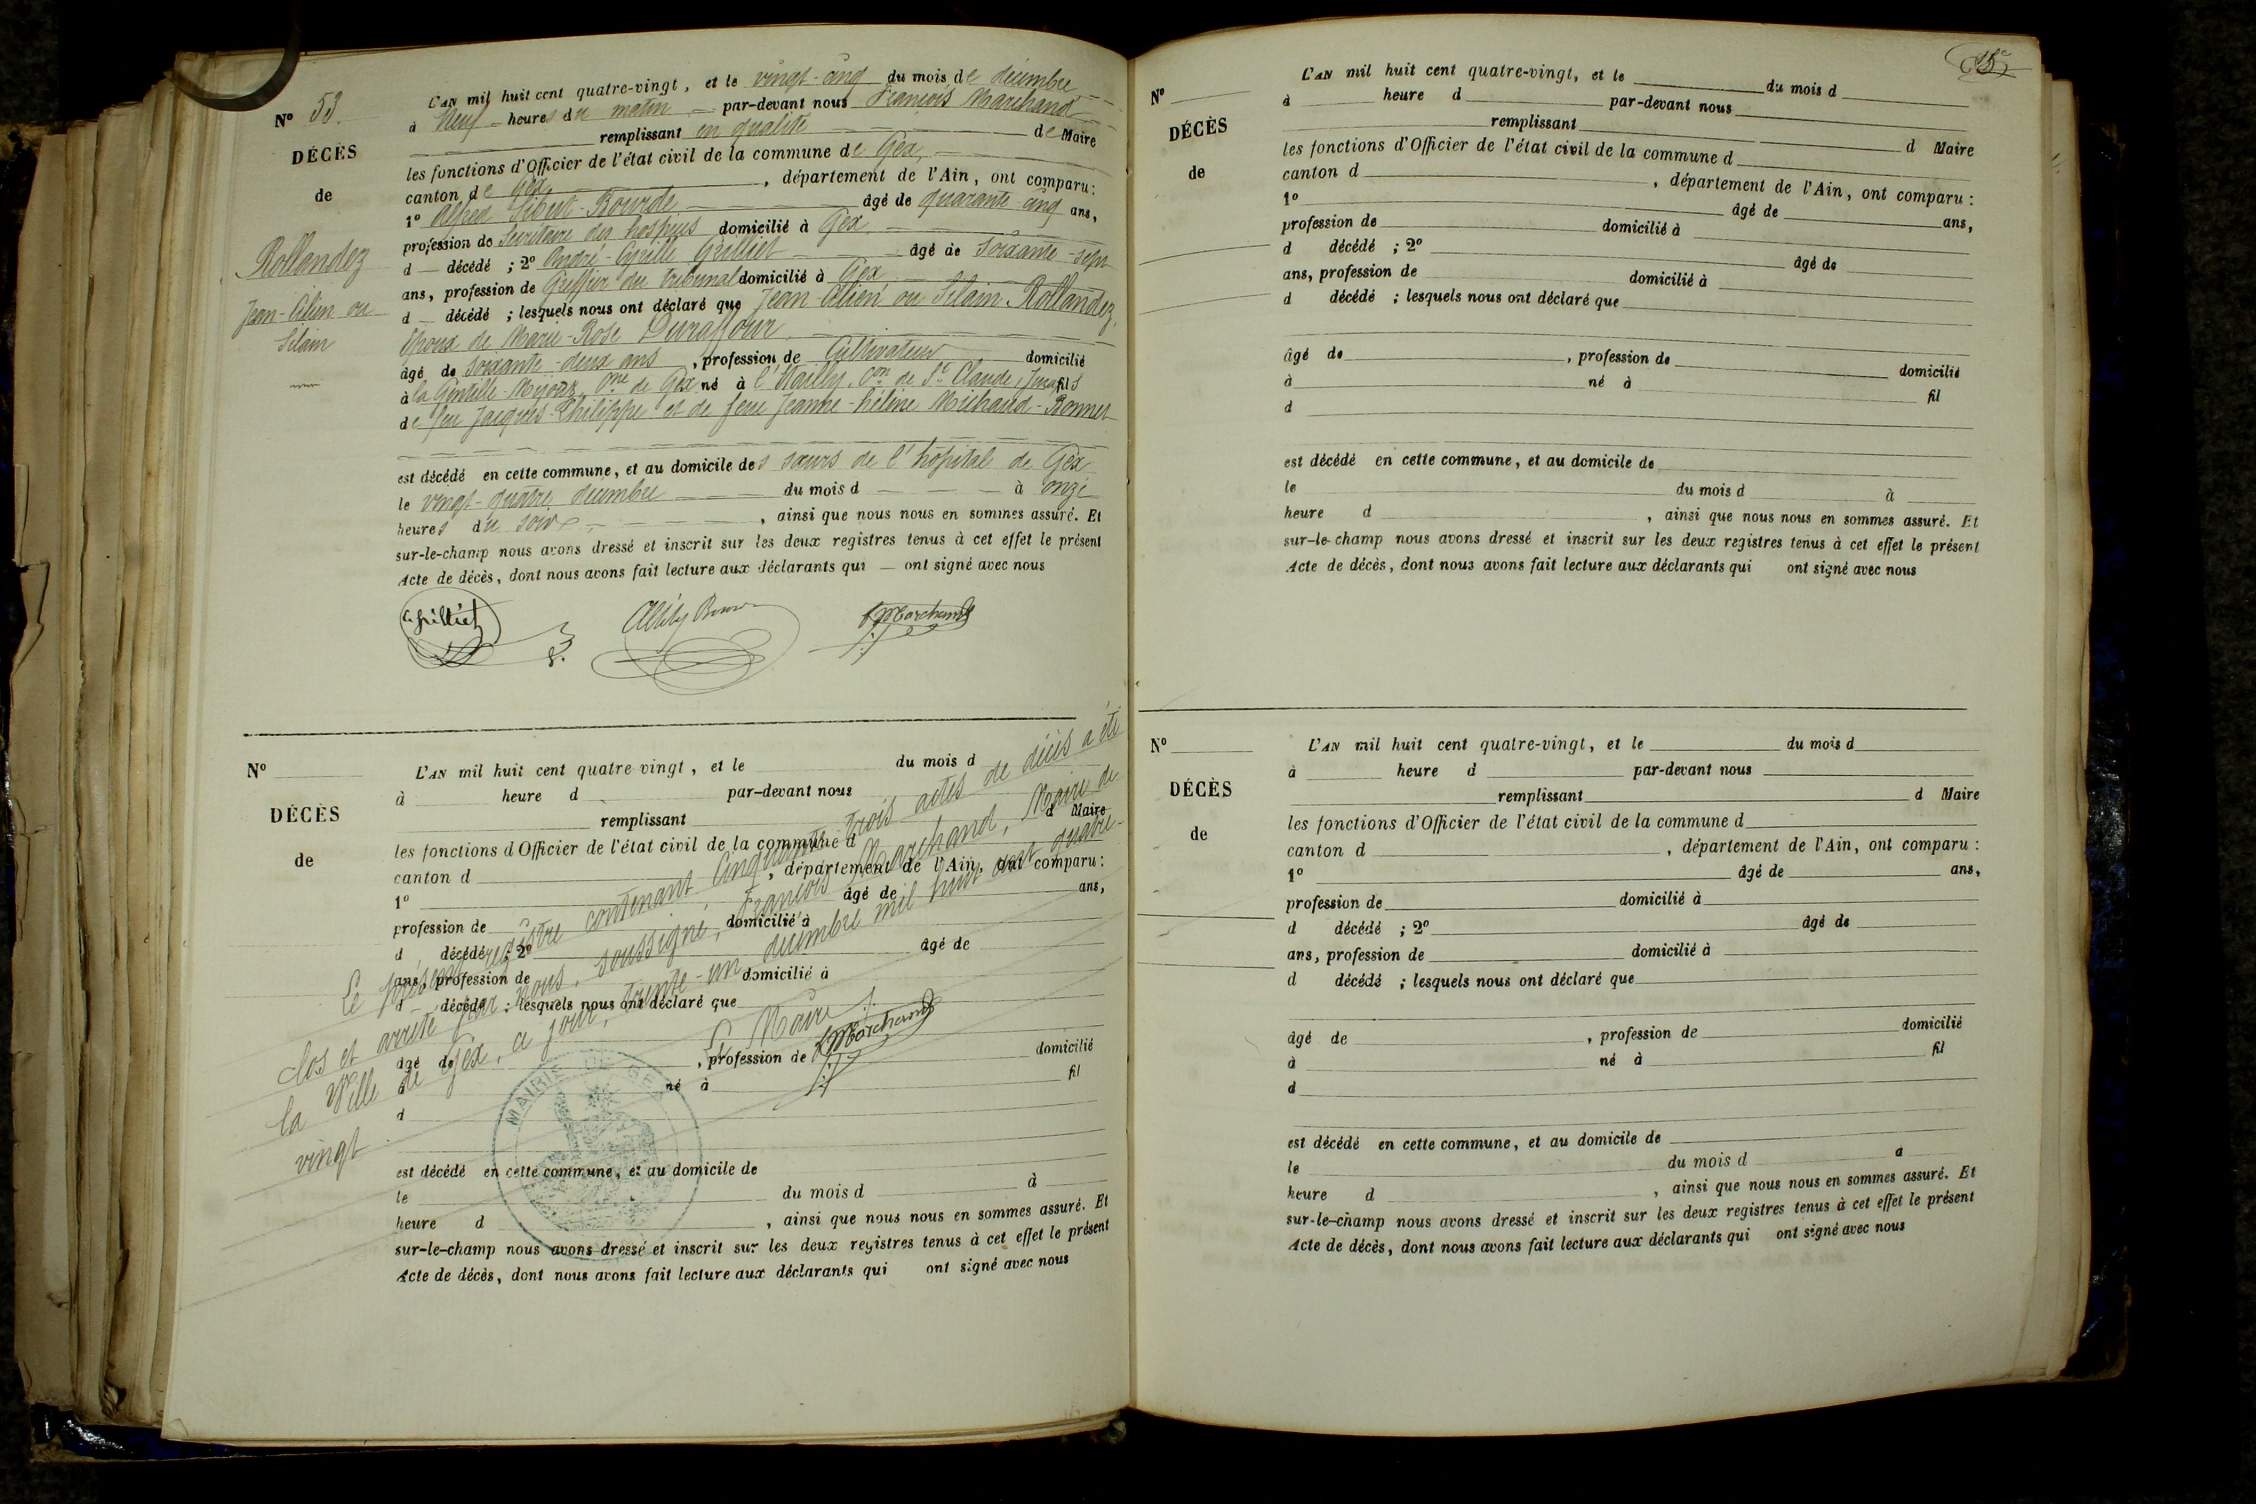 N° 53.
DÉCÈS
de
Rollandez
Jean-Célien ou
Silain
L'AN mil huit cent quatre-vingt, et le vingt-cinq du mois de décembre
à Neuf heures du matin par-devant nous François Marchand
remplissant en qualité de Maire
les fonctions d'Officier de l'état civil de la commune de Gex,
canton de Gex, département de l'Ain, ont comparu:
1° Alfred Sibut-Bourde âgé de quarante-cinq ans,
profession de Secrétaire des hospices domicilié à Gex
d décédé ; 2° André-Cyrille Grilliet âgé de soixante-sept
ans, profession de Greffier du tribunal domicilié à Gex
d décédé ; lesquels nous ont déclaré que Jean-Célien ou Silain Rollandez,
époux de Marie-Rose Duraffour
âgé de soixante-deux ans, profession de Cultivateur domicilié
à la Gentille-Mijoux, Cne de Gex né à l'Nailly, Con de St Claude, Jura fils
de feu Jacques-Philippe et de feue Jeanne-hélène Michaud-Bonnet
est décédé en cette commune, et au domicile des sœurs de l'hôpital de Gex
le vingt-quatre décembre du mois d à onze
heures du soir, ainsi que nous nous en sommes assuré. Et
sur-le-champ nous avons dressé et inscrit sur les deux registres tenus à cet effet le présent
Acte de décès, dont nous avons fait lecture aux déclarants qui ont signé avec nous
Grilliet
F. Marchand
N°
DÉCÈS
de
L'AN mil huit cent quatre vingt, et le du mois d
à heure d par-devant nous
remplissant d Maire
les fonctions d'Officier de l'état civil de la commune d
canton d , département de l'Ain, ont comparu:
1° âgé de ans,
profession de domicilié à
d décédé ; 2° âgé de
ans, profession de domicilié à
d décédé ; lesquels nous ont déclaré que
âgé de , profession de domicilié
à né à fil
d
est décédé en cette commune, et au domicile de
le du mois d à
heure d , ainsi que nous nous en sommes assuré. Et
sur-le-champ nous avons dressé et inscrit sur les deux registres tenus à cet effet le présent
Acte de décès, dont nous avons fait lecture aux déclarants qui ont signé avec nous
Le présent registre contenant Cinquante-trois actes de décès a été
clos et arrêté par nous, soussigné, François Marchand, Maire de
la Ville de Gex, ce jour, trente-un décembre mil huit cent quatre-
vingt
Le Maire
F. Marchand
MAIRIE DE GEX
15e
N°
DÉCÈS
de
L'AN mil huit cent quatre-vingt, et le du mois d
à heure d par-devant nous
remplissant d Maire
les fonctions d'Officier de l'état civil de la commune d
canton d , département de l'Ain, ont comparu :
1° âgé de ans,
profession de domicilié à
d décédé ; 2° âgé de
ans, profession de domicilié à
d décédé ; lesquels nous ont déclaré que
âgé de , profession de domicilié
à né à fil
d
est décédé en cette commune, et au domicile de
le du mois d à
heure d , ainsi que nous nous en sommes assuré. Et
sur-le-champ nous avons dressé et inscrit sur les deux registres tenus à cet effet le présent
Acte de décès, dont nous avons fait lecture aux déclarants qui ont signé avec nous
N°
DÉCÈS
de
L'AN mil huit cent quatre-vingt, et le du mois d
à heure d par-devant nous
remplissant d Maire
les fonctions d'Officier de l'état civil de la commune d
canton d , département de l'Ain, ont comparu :
1° âgé de ans,
profession de domicilié à
d décédé ; 2° âgé de
ans, profession de domicilié à
d décédé ; lesquels nous ont déclaré que
âgé de , profession de domicilié
à né à fil
d
est décédé en cette commune, et au domicile de
le du mois d à
heure d , ainsi que nous nous en sommes assuré. Et
sur-le-champ nous avons dressé et inscrit sur les deux registres tenus à cet effet le présent
Acte de décès, dont nous avons fait lecture aux déclarants qui ont signé avec nous